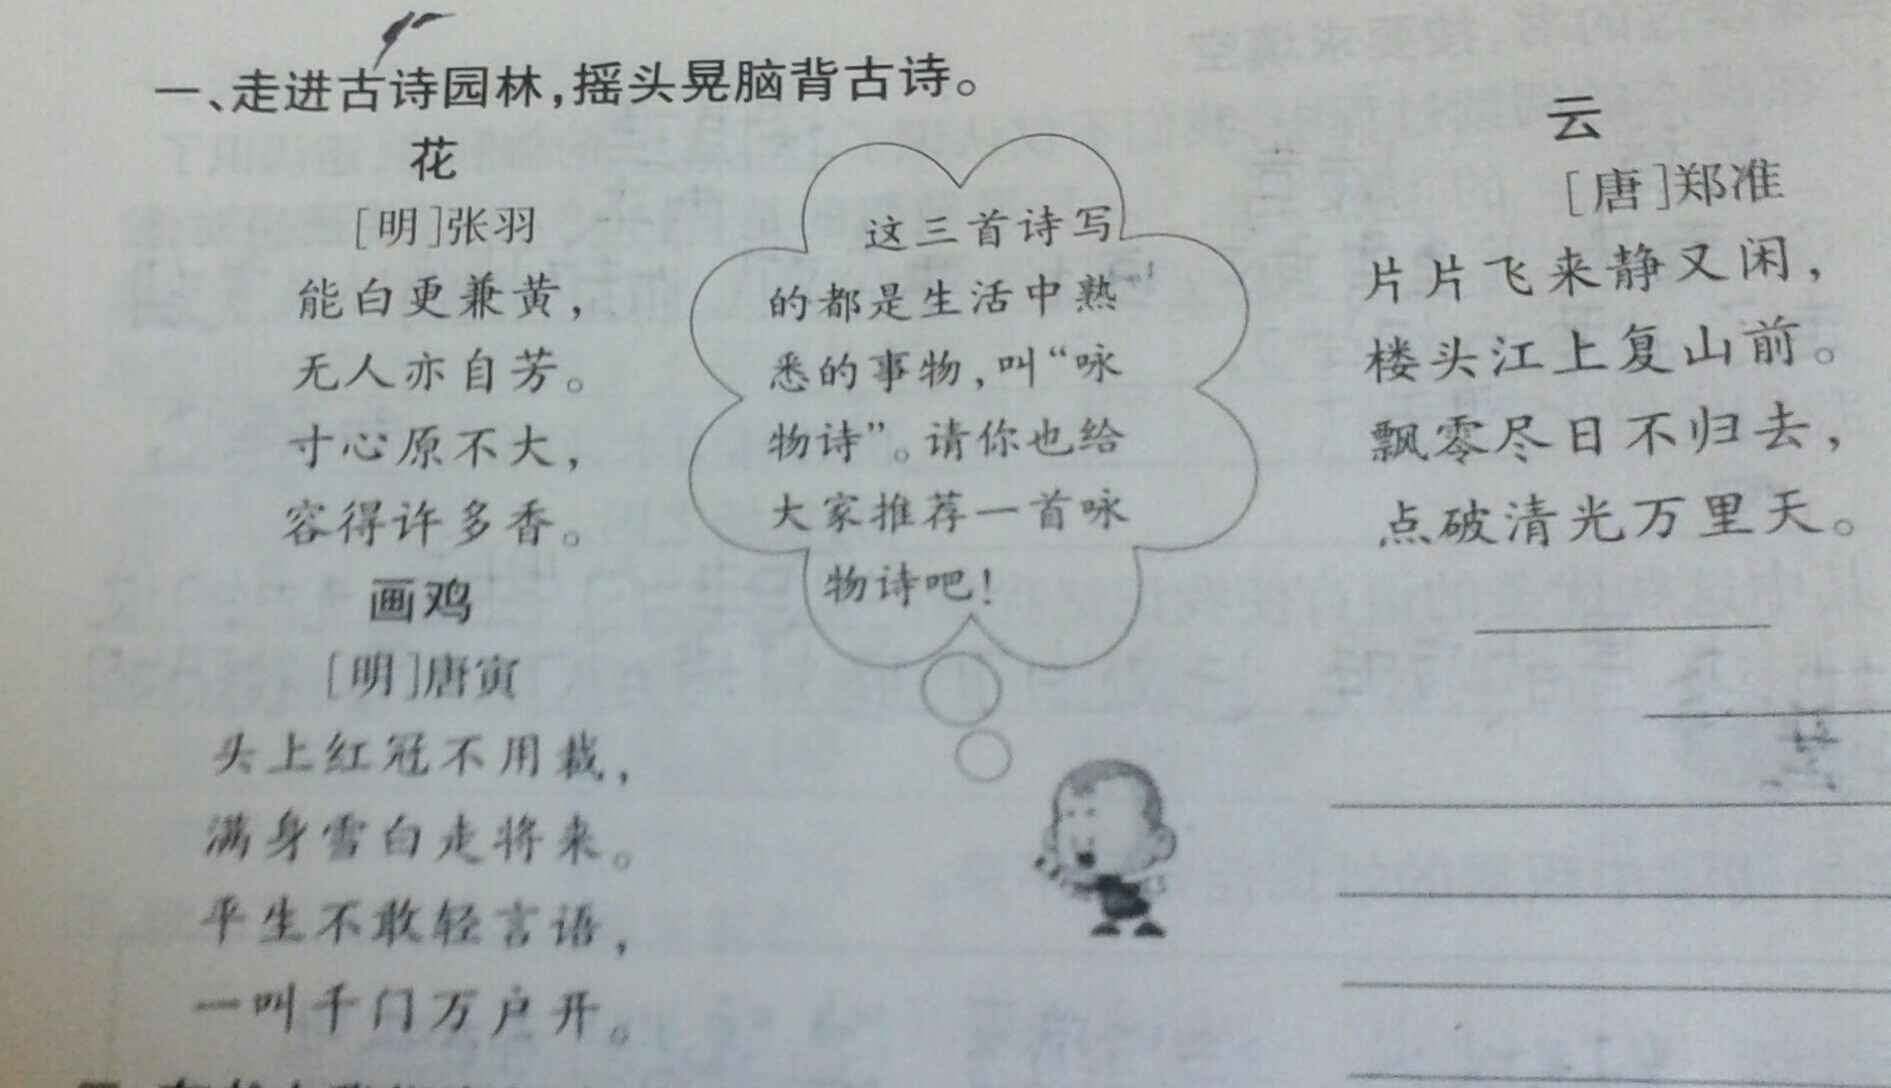 一、走进古诗园林，摇头晃脑背古诗。
花
［明］张羽
能白更兼黄，
无人亦自芳。
寸心原不大，
容得许多香。
画鸡
［明］唐寅
头上红冠不用裁，
满身雪白走将来。
平生不敢轻言语，
一叫千门万户开。
这三首诗写
的都是生活中熟
悉的事物，叫“咏
物诗”。请你也给
大家推荐一首咏
物诗吧！
云
［唐］郑准
片片飞来静又闲，
楼头江上复山前。
飘零尽日不归去，
点破清光万里天。